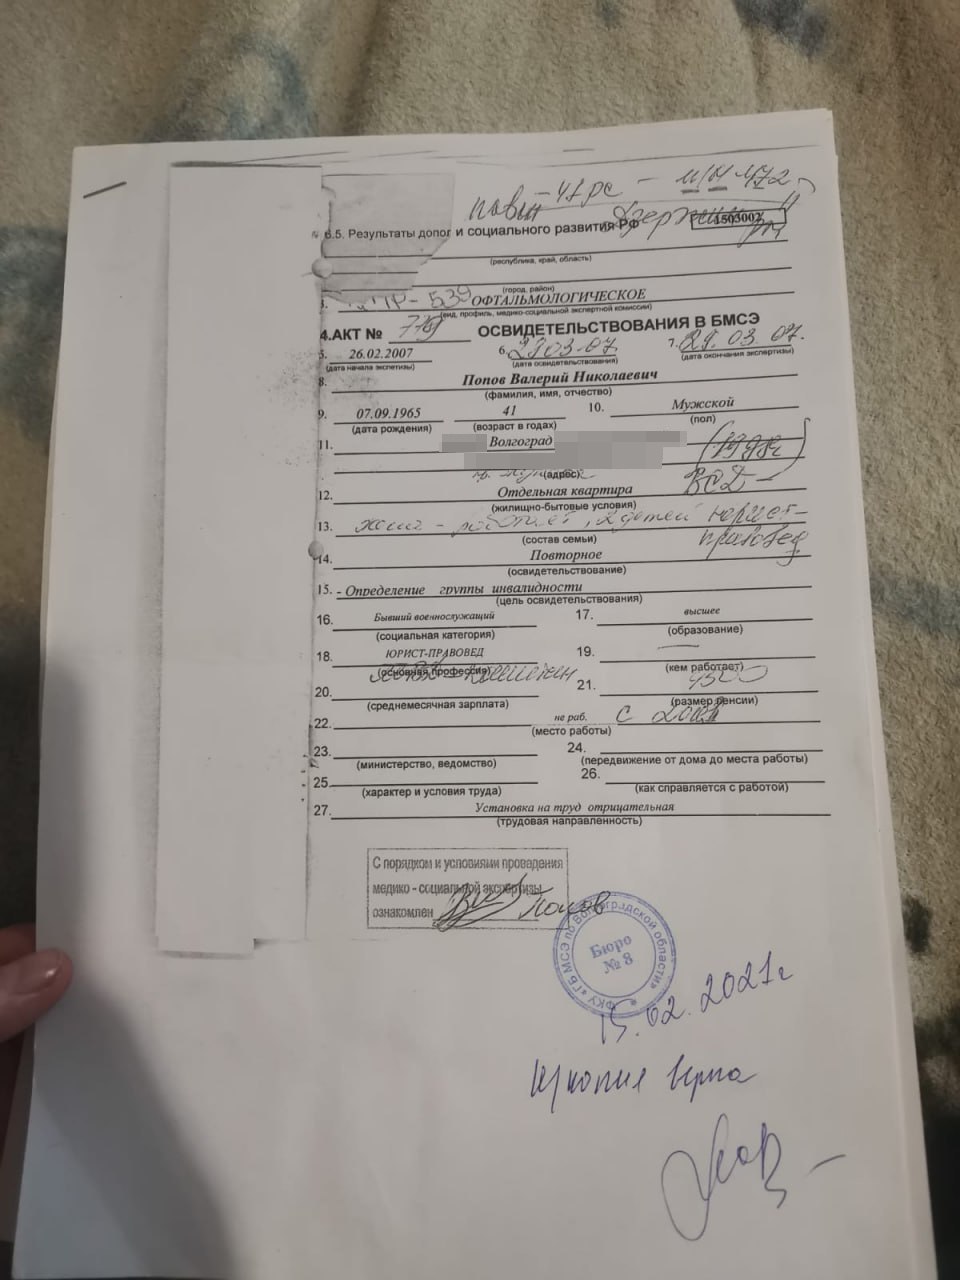 6.5. Результаты допол и социального развития РФ
1503002
(республика, край, область)
(город, район)
ОФТАЛЬМОЛОГИЧЕСКОЕ
(вид, профиль, медико-социальной экспертной комиссии)
4.АКТ № ОСВИДЕТЕЛЬСТВОВАНИЯ В БМСЭ
5. 26.02.2007 6. 29.03.07 7. 29.03.07.
(дата начала экспетизы) (дата освидетельствования) (дата окончания экспертизы)
8. Попов Валерий Николаевич
(фамилия, имя, отчество)
9. 07.09.1965 41 10. Мужской
(дата рождения) (возраст в годах) (пол)
11. Волгоград
(адрес)
12. Отдельная квартира
(жилищно-бытовые условия)
13. жена - работает, 2 детей юрист-
(состав семьи) правовед
14. Повторное
(освидетельствование)
15. - Определение группы инвалидности
(цель освидетельствования)
16. Бывший военнослужащий 17. высшее
(социальная категория) (образование)
18. ЮРИСТ-ПРАВОВЕД 19.
(основная профессия) (кем работает)
20. 21.
(среднемесячная зарплата) (размер пенсии)
22. не раб. с
(место работы)
23. 24.
(министерство, ведомство) (передвижение от дома до места работы)
25. 26.
(характер и условия труда) (как справляется с работой)
27. Установка на труд отрицательная
(трудовая направленность)
С порядком и условиями проведения
медико - социальной экспертизы
ознакомлен Попов
ФКУ «ГБ МСЭ по Волгоградской области»
Бюро
№ 8
15.02.2021г
копия верна